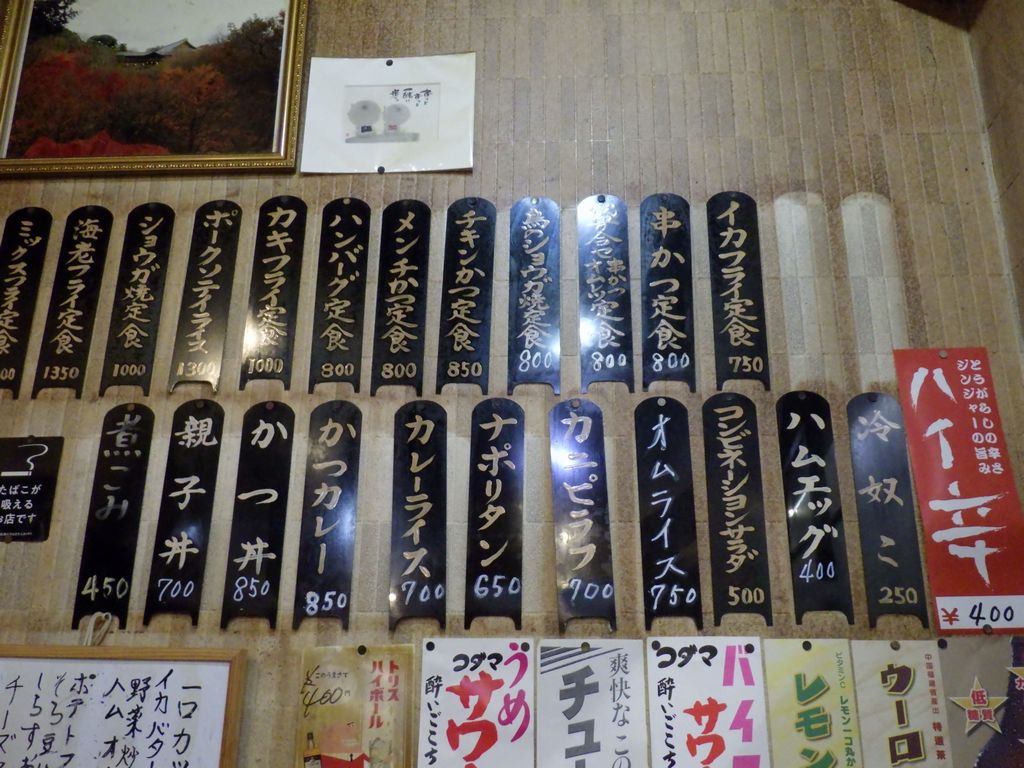 イカフライ定食 750
串かつ定食 800
串かつ
オムレツ定食 800
鳥ショウガ焼定食 800
チキンかつ定食 850
メンチかつ定食 800
ハンバーグ定食 800
カキフライ定食 1000
ポークソテイライス 1300
ショウガ焼定食 1000
海老フライ定食 1350
ミックスフライ定食
冷奴 250
ハムエッグ 400
コンビネーションサラダ 500
オムライス 750
カニピラフ 700
ナポリタン 650
カレーライス 700
かつカレー 850
かつ丼 850
親子丼 700
煮こみ 450
とうがらしの辛さ
ジンジャーの旨み
ハイ辛
¥400
たばこが
吸える
お店です
一口カツ
イカバター
野菜炒
ハムオ
ポテトフ
そら豆
しらすお
チーズ
トリス
ハイボール
¥460
うめ
コダマ
サワ
酔いごこち
爽快なこの
チュー
バイ
コダマ
サワ
酔いごこち
ビタミンC
レモン一コ
レモン
中国福建省産出 特選茶
ウーロ
低
糖質